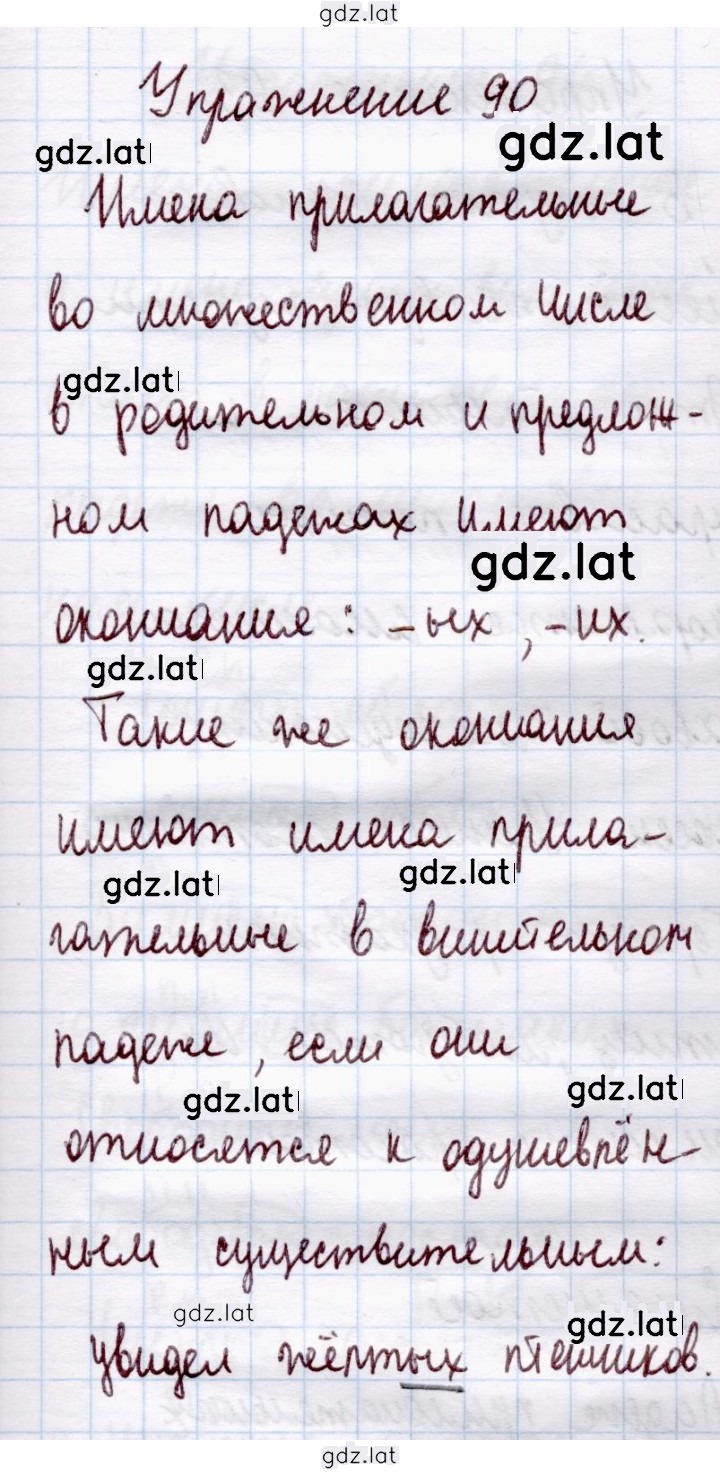 gdz.lat
Упражнение 90
gdz.lat
gdz.lat
Имена прилагательные
во множественном числе
gdz.lat
в родительном и предлож-
ном падежах имеют
gdz.lat
окончания: -ых, -их.
gdz.lat
Такие же окончания
имеют имена прила-
gdz.lat
gdz.lat
гательные в винительном
падеже, если они
gdz.lat
gdz.lat
относятся к одушевлён-
ным существительным:
gdz.lat
gdz.lat
увидел жёлтых птенчиков.
gdz.lat